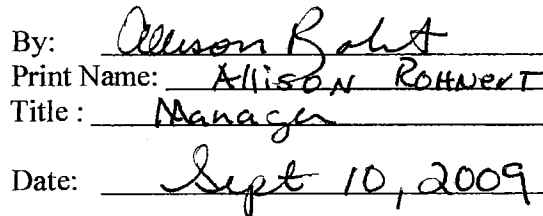 By: Allison Rohnert
Print Name: Allison Rohnert
Title : Manager
Date: Sept 10, 2009